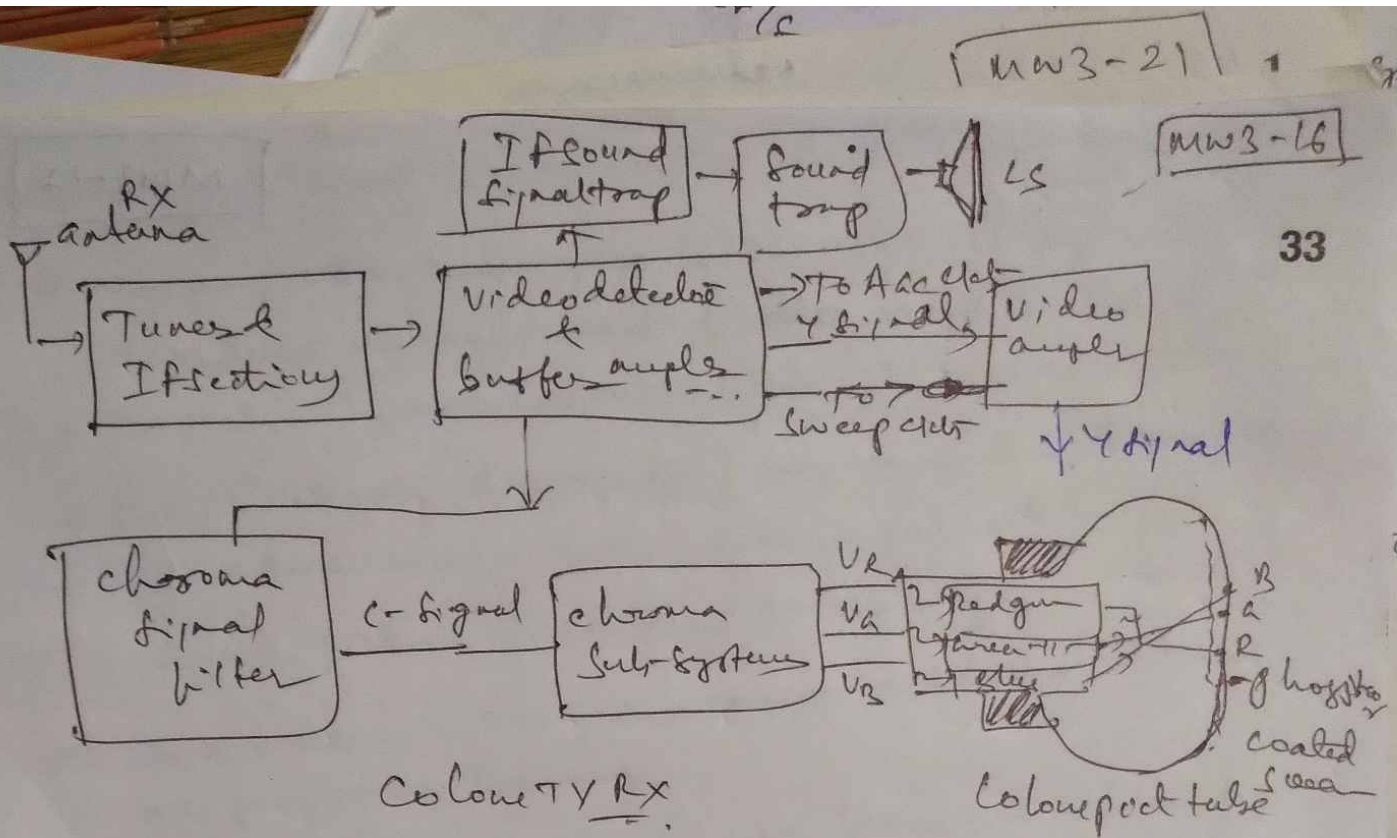 MW3-21
MW3-16
33
RX
antena
Tuner &
If sections
If sound
signal trap
Sound
trap
LS
Video detector
&
buffer amplr
To AGC
Y signal
To
Sweep
Video
amplr
Y signal
Chroma
signal
filter
C-signal
Chroma
Sub-System
VR
VG
VB
Red gun
Green
Blue
B
G
R
coated
Colour TV RX
Colour pict tube